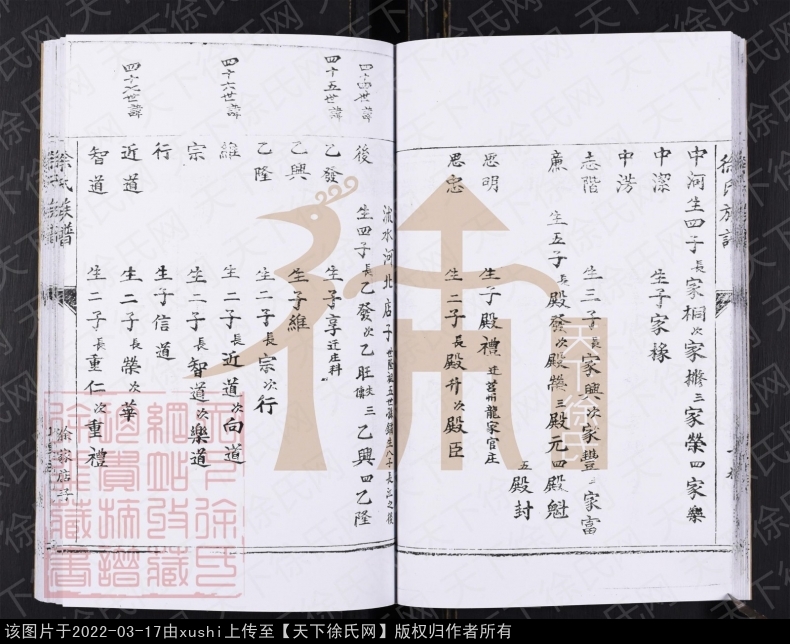 徐氏族譜
中河 生四子 長家桐 次家 三家榮 四家樂
中潔 生子家椽
中涝
志階 生三子 長家興 次家豊 三家富
廉 生五子 長殿發 次殿 三殿元 四殿魁
五殿封
思明 生子殿禮 迁莒州龍家官庄
思忠 生二子 長殿升 次殿臣
河北店子
四十四世諱
後 生四子 長乙發 次乙旺 三乙興 四乙隆
四十五世諱
乙發 生子享 迁庄科
乙興 生子維
乙隆 生二子 長宗 次行
四十六世諱
維 生二子 長近道 次向道
宗 生二子 長智道 次樂道
行 生子信道
四十七世諱
近道 生二子 長榮 次華
智道 生二子 長重仁 次重禮
徐氏族譜
徐家店子
天下徐氏网
该图片于2022-03-17由xushi上传至【天下徐氏网】版权归作者所有